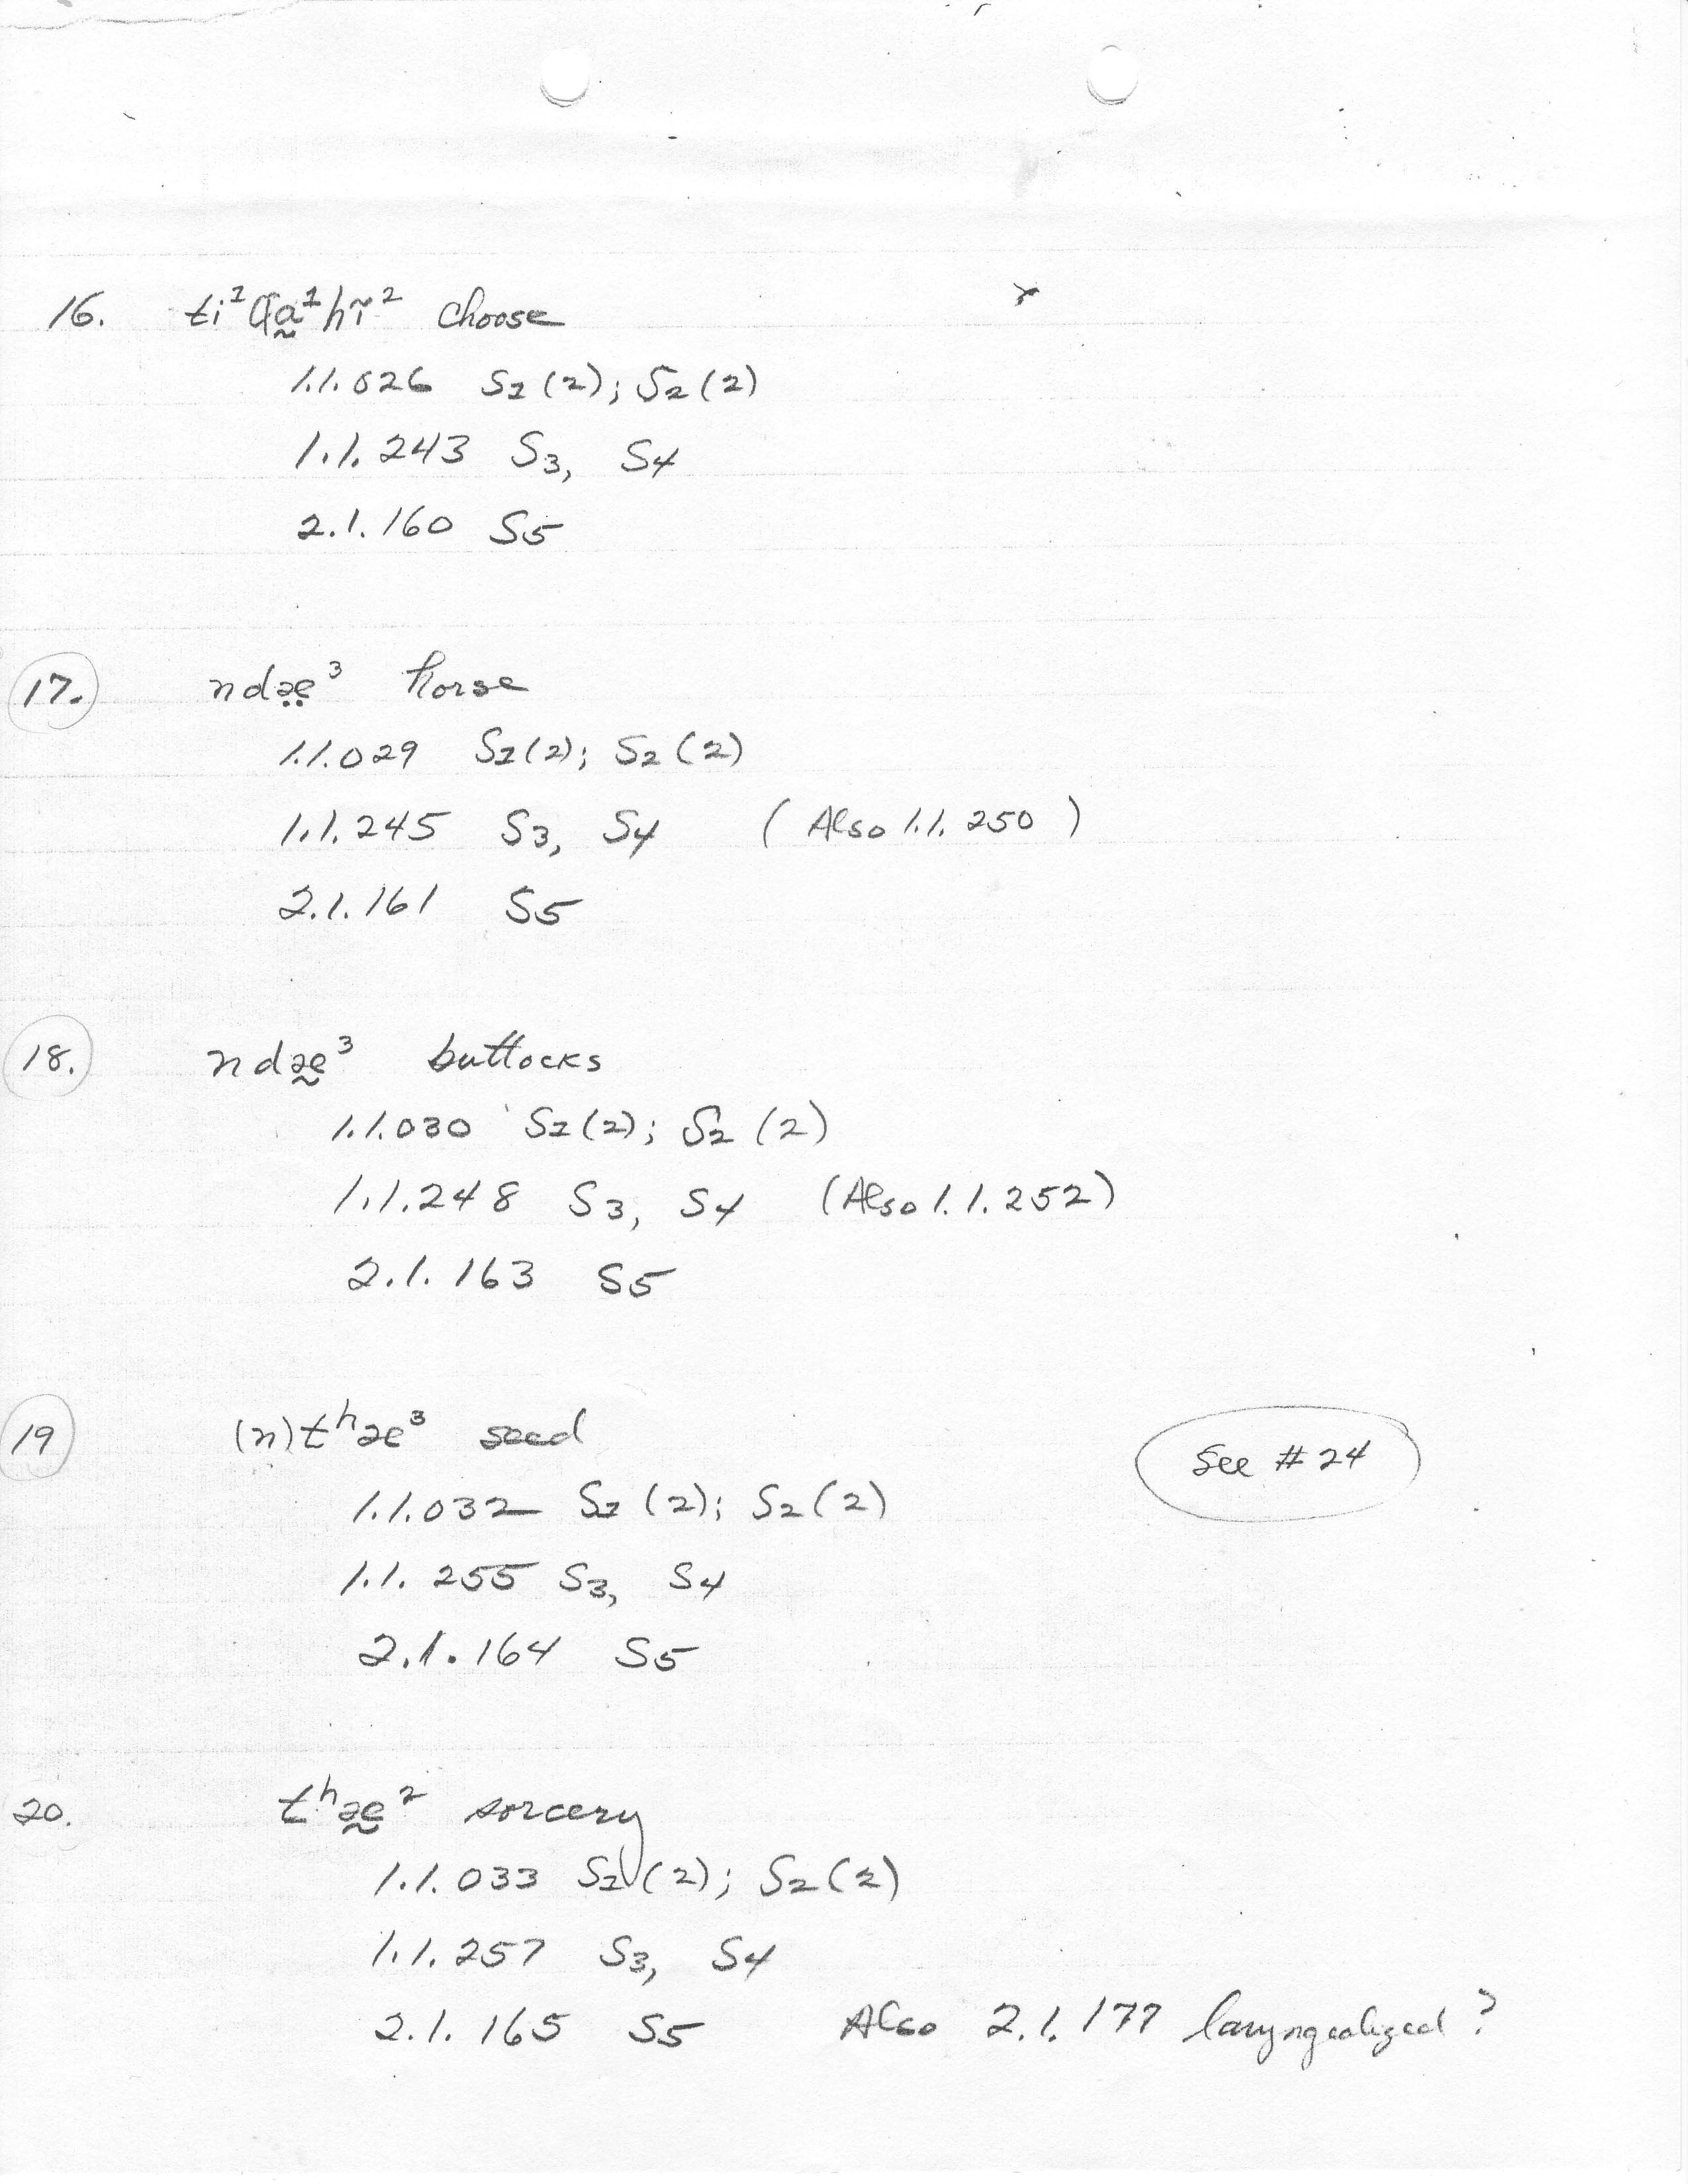 16. ti¹ʠa̰¹hĩ² choose
1.1.026 S1(2); S2(2)
1.1.243 S3, S4
2.1.160 S5
17. ndæ̤³ horse
1.1.029 S1(2); S2(2)
1.1.245 S3, S4 (Also 1.1.250)
2.1.161 S5
18. ndæ̰³ buttocks
1.1.030 S1(2); S2(2)
1.1.248 S3, S4 (Also 1.1.252)
2.1.163 S5
19 (n)tʰæ³ seed See #24
1.1.032 S1(2); S2(2)
1.1.255 S3, S4
2.1.164 S5
20. tʰæ̰² sorcery
1.1.033 S1(2); S2(2)
1.1.257 S3, S4
2.1.165 S5 Also 2.1.177 laryngealized?